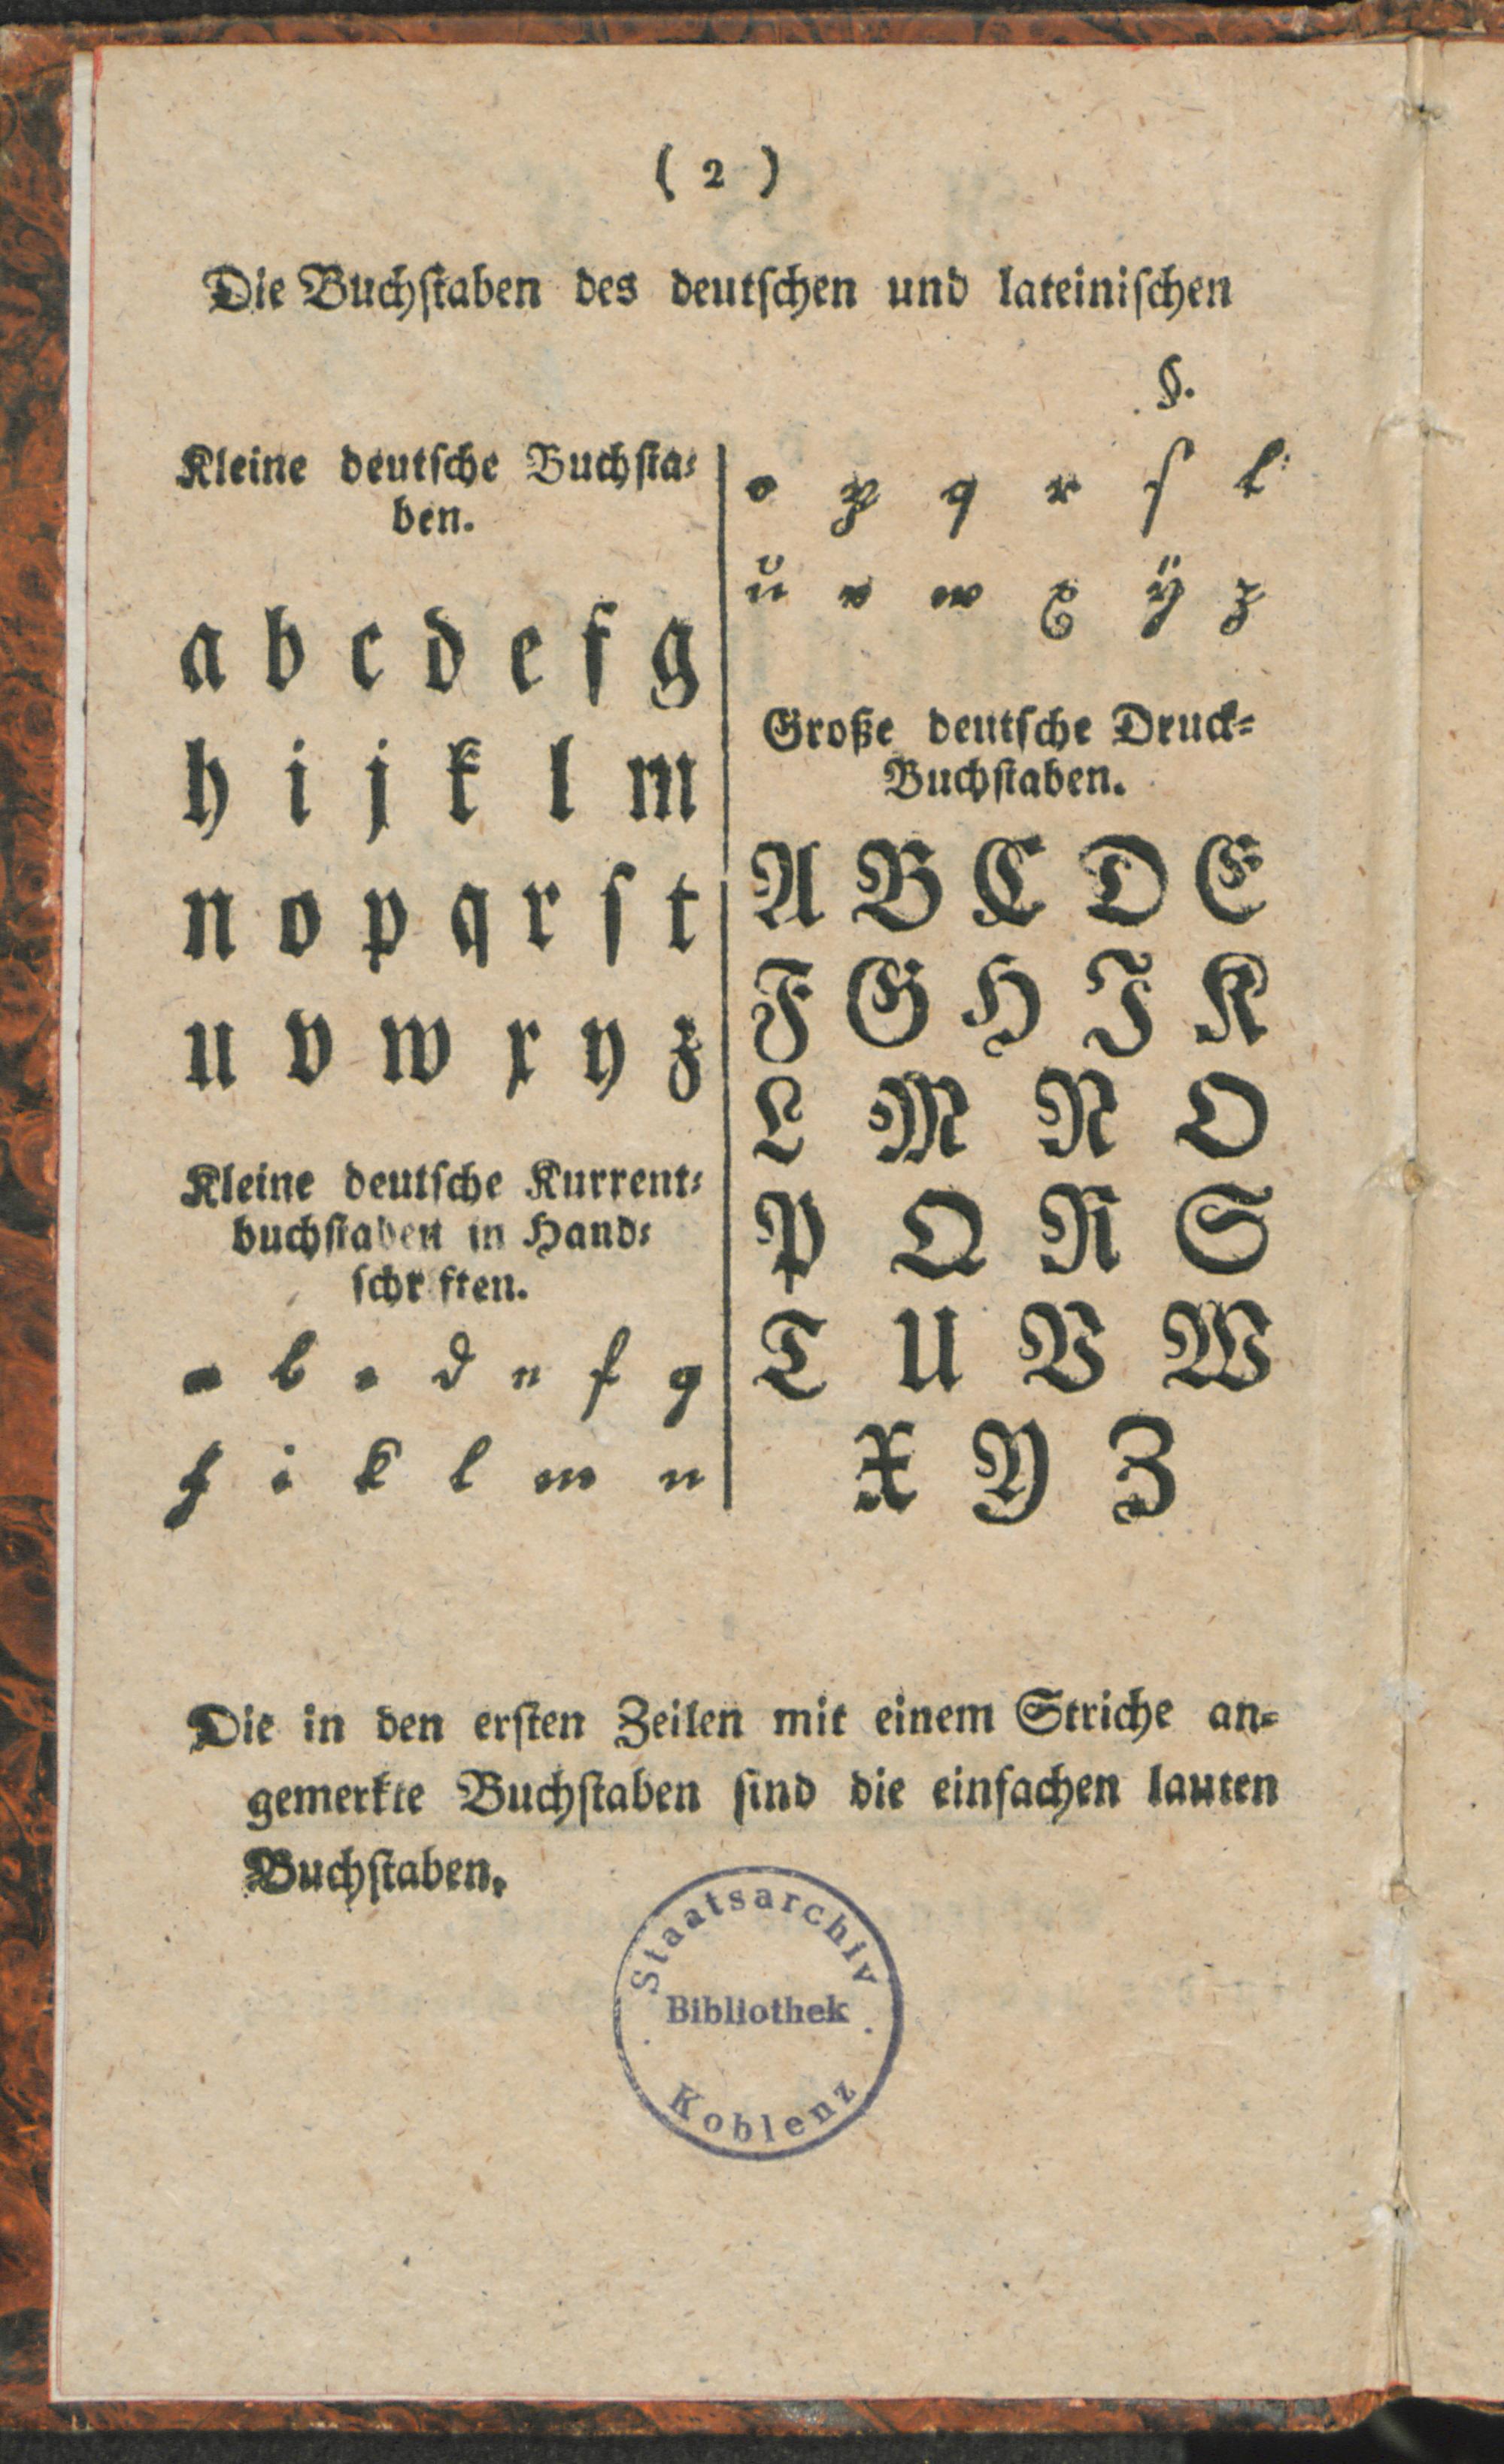 ( 2 )
Die Buchſtaben des deutſchen und lateiniſchen
§.
Kleine deutſche Buchſta⸗
ben.
a b c d e f g
h i j k l m
n o p q r ſ t
u v w x y z
Kleine deutſche Kurrent⸗
buchſtaben in Hand⸗
ſchriften.
a b c d e f g
h i k l m n
o p q r ſ t
u v w x ÿ z
Große deutſche Druck⸗
Buchſtaben.
A B C D E
F G H I K
L M N O
P Q R S
T U V W
X Y Z
Die in den erſten Zeilen mit einem Striche an⸗
gemerkte Buchſtaben ſind die einfachen lauten
Buchſtaben.
Staatsarchiv
Bibliothek
Koblenz